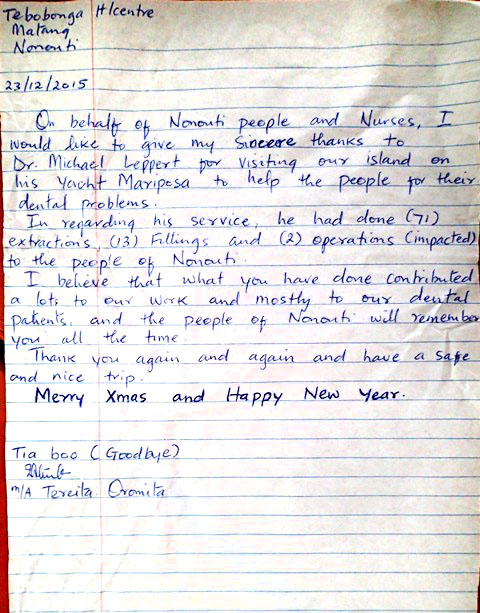 Tebobonga H/centre
Matang
Nonouti
23/12/2015
On behalf of Nonouti people and Nurses, I
would like to give my Sincere thanks to
Dr. Michael Leppert for visiting our island on
his Yacht Mariposa to help the people for their
dental problems.
In regarding his service, he had done (71)
extractions, (13) Fillings and (2) operations (impacted)
to the people of Nonouti.
I believe that what you have done contributed
a lots to our work and mostly to our dental
patients, and the people of Nonouti will remember
you all the time.
Thank you again and again and have a safe
and nice trip.
Merry Xmas and Happy New Year.
Tia boo (Goodbye)
M/A Tereita Oromita